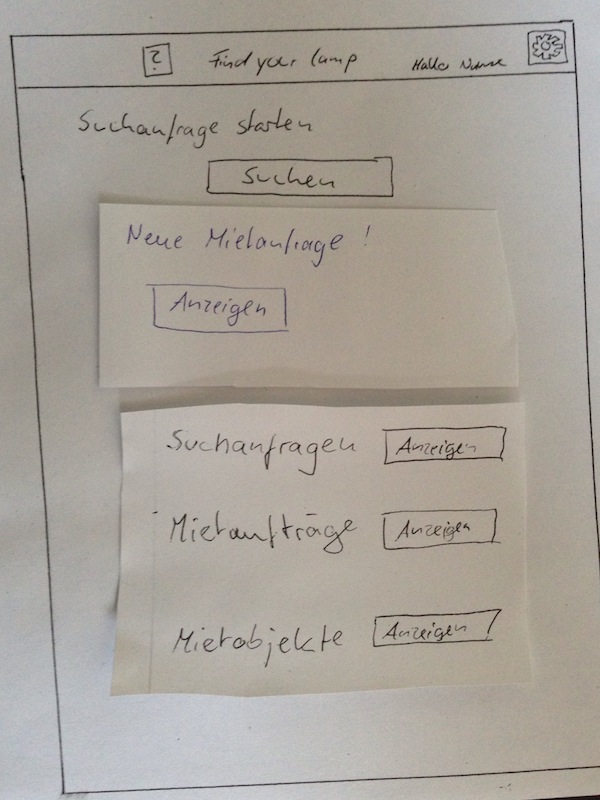 ? Find your lamp Hallo
Suchanfrage starten
Suchen
Neue Mietanfrage !
Anzeigen
Suchanfragen Anzeigen
Mietaufträge Anzeigen
Mietobjekte Anzeigen